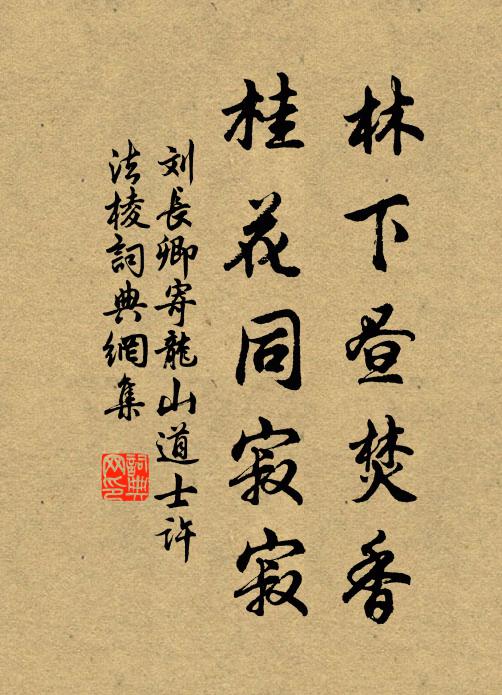 林下昼焚香
桂花同寂寂
刘長卿寄龍山道士许
法棱詞典網集
詞典网印